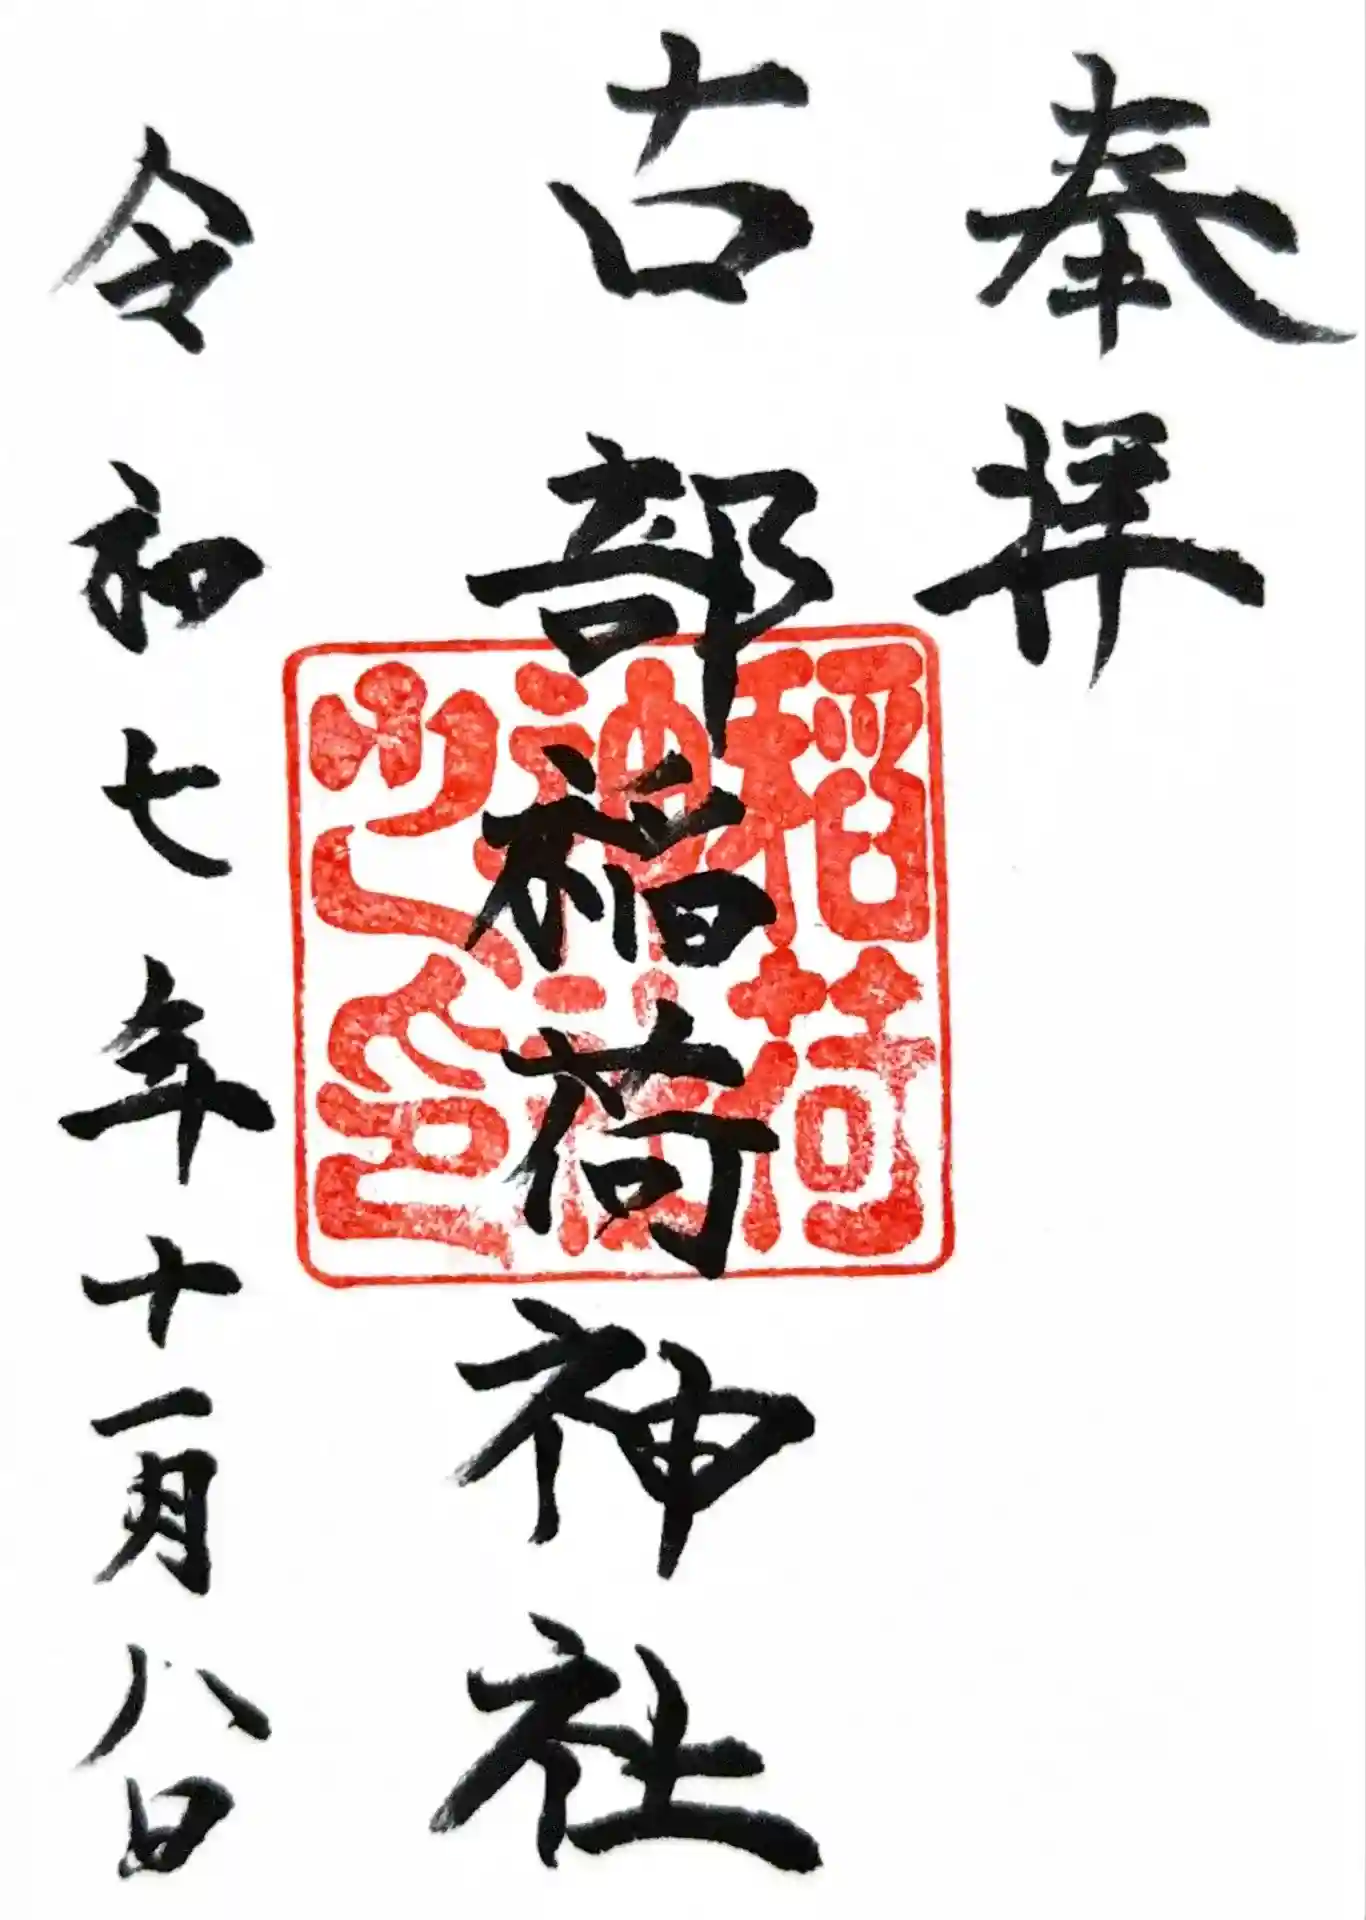 奉拝
古部稲荷神社
令和七年十一月八日
稲荷
神社
少し印